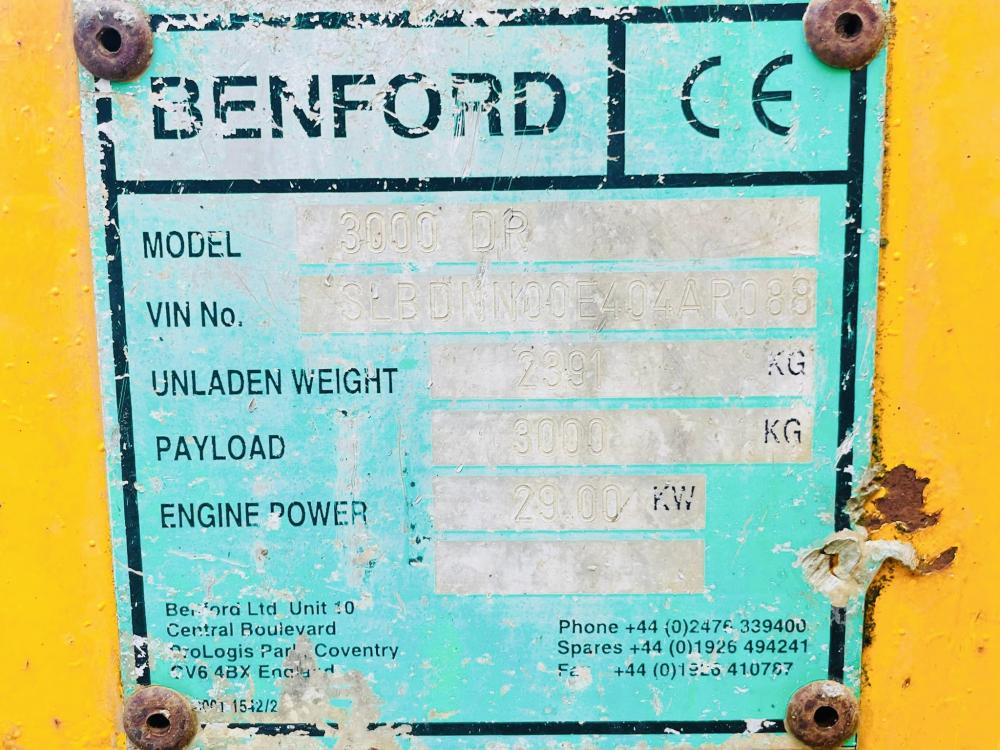 BENFORD CE
MODEL 3000 DR
VIN No. SLBDNN00E404AR088
UNLADEN WEIGHT 2391 KG
PAYLOAD 3000 KG
ENGINE POWER 29.00 KW
Benford Ltd Unit 10
Central Boulevard
ProLogis Park Coventry
CV6 4BX England
Phone +44 (0)2476 339400
Spares +44 (0)1926 494241
Fax +44 (0)1926 410787
1542/2